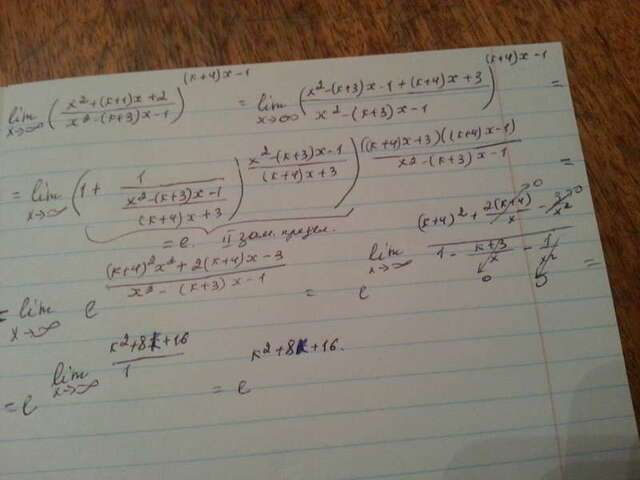 lim x→∞ ((x²+(к+1)x+2)/(x²-(к+3)x-1))^((к+4)x-1) = lim x→∞ ((x²-(к+3)x-1+(к+4)x+3)/(x²-(к+3)x-1))^((к+4)x-1) =
= lim x→∞ (1+1/((x²-(к+3)x-1)/((к+4)x+3)))^((x²-(к+3)x-1)/((к+4)x+3))^(((к+4)x+3)((к+4)x-1)/(x²-(к+3)x-1)) =
= e. II зам. предел.
= lim x→∞ e^(((к+4)²x²+2(к+4)x-3)/(x²-(к+3)x-1)) = e^(lim x→∞ ((к+4)²+2(к+4)/x→0-3/x²→0)/(1-(к+3)/x→0-1/x²→0)) =
= e^(lim x→∞ (к²+8к+16)/1) = e^(к²+8к+16).